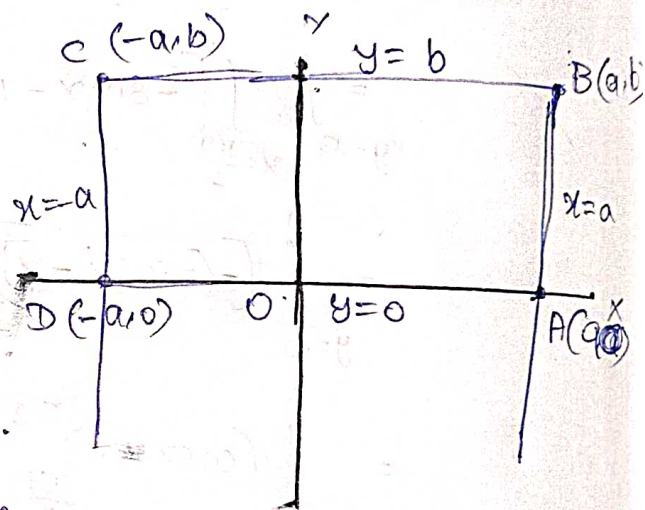 C (-a,b)
Y
y = b
B(a,b
x=-a
x=a
D(-a,0)
O
y=0
X
A(a,0)